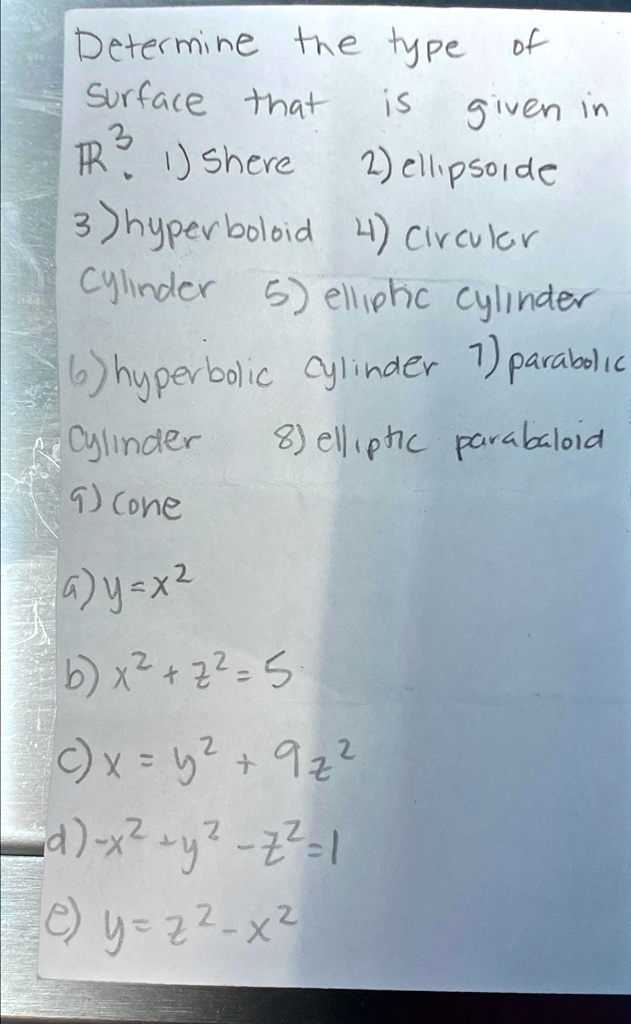 Determine the type of
surface that is given in
ℝ³. 1) Shere 2) ellipsoide
3) hyperboloid 4) circular
cylinder 5) elliptic cylinder
6) hyperbolic cylinder 7) parabolic
cylinder 8) elliptic parabaloid
9) cone
a) y = x²
b) x² + z² = 5
c) x = y² + 9z²
d) -x² + y² - z² = 1
e) y = z² - x²